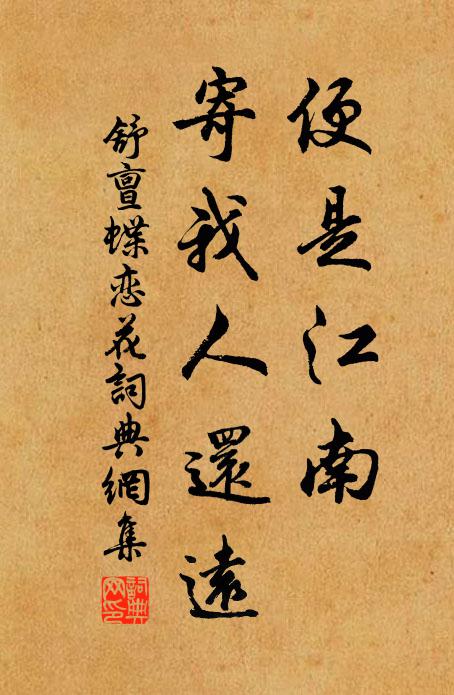 便是江南
寄我人還遠
舒亶蝶恋花詞典網集
詞典网印